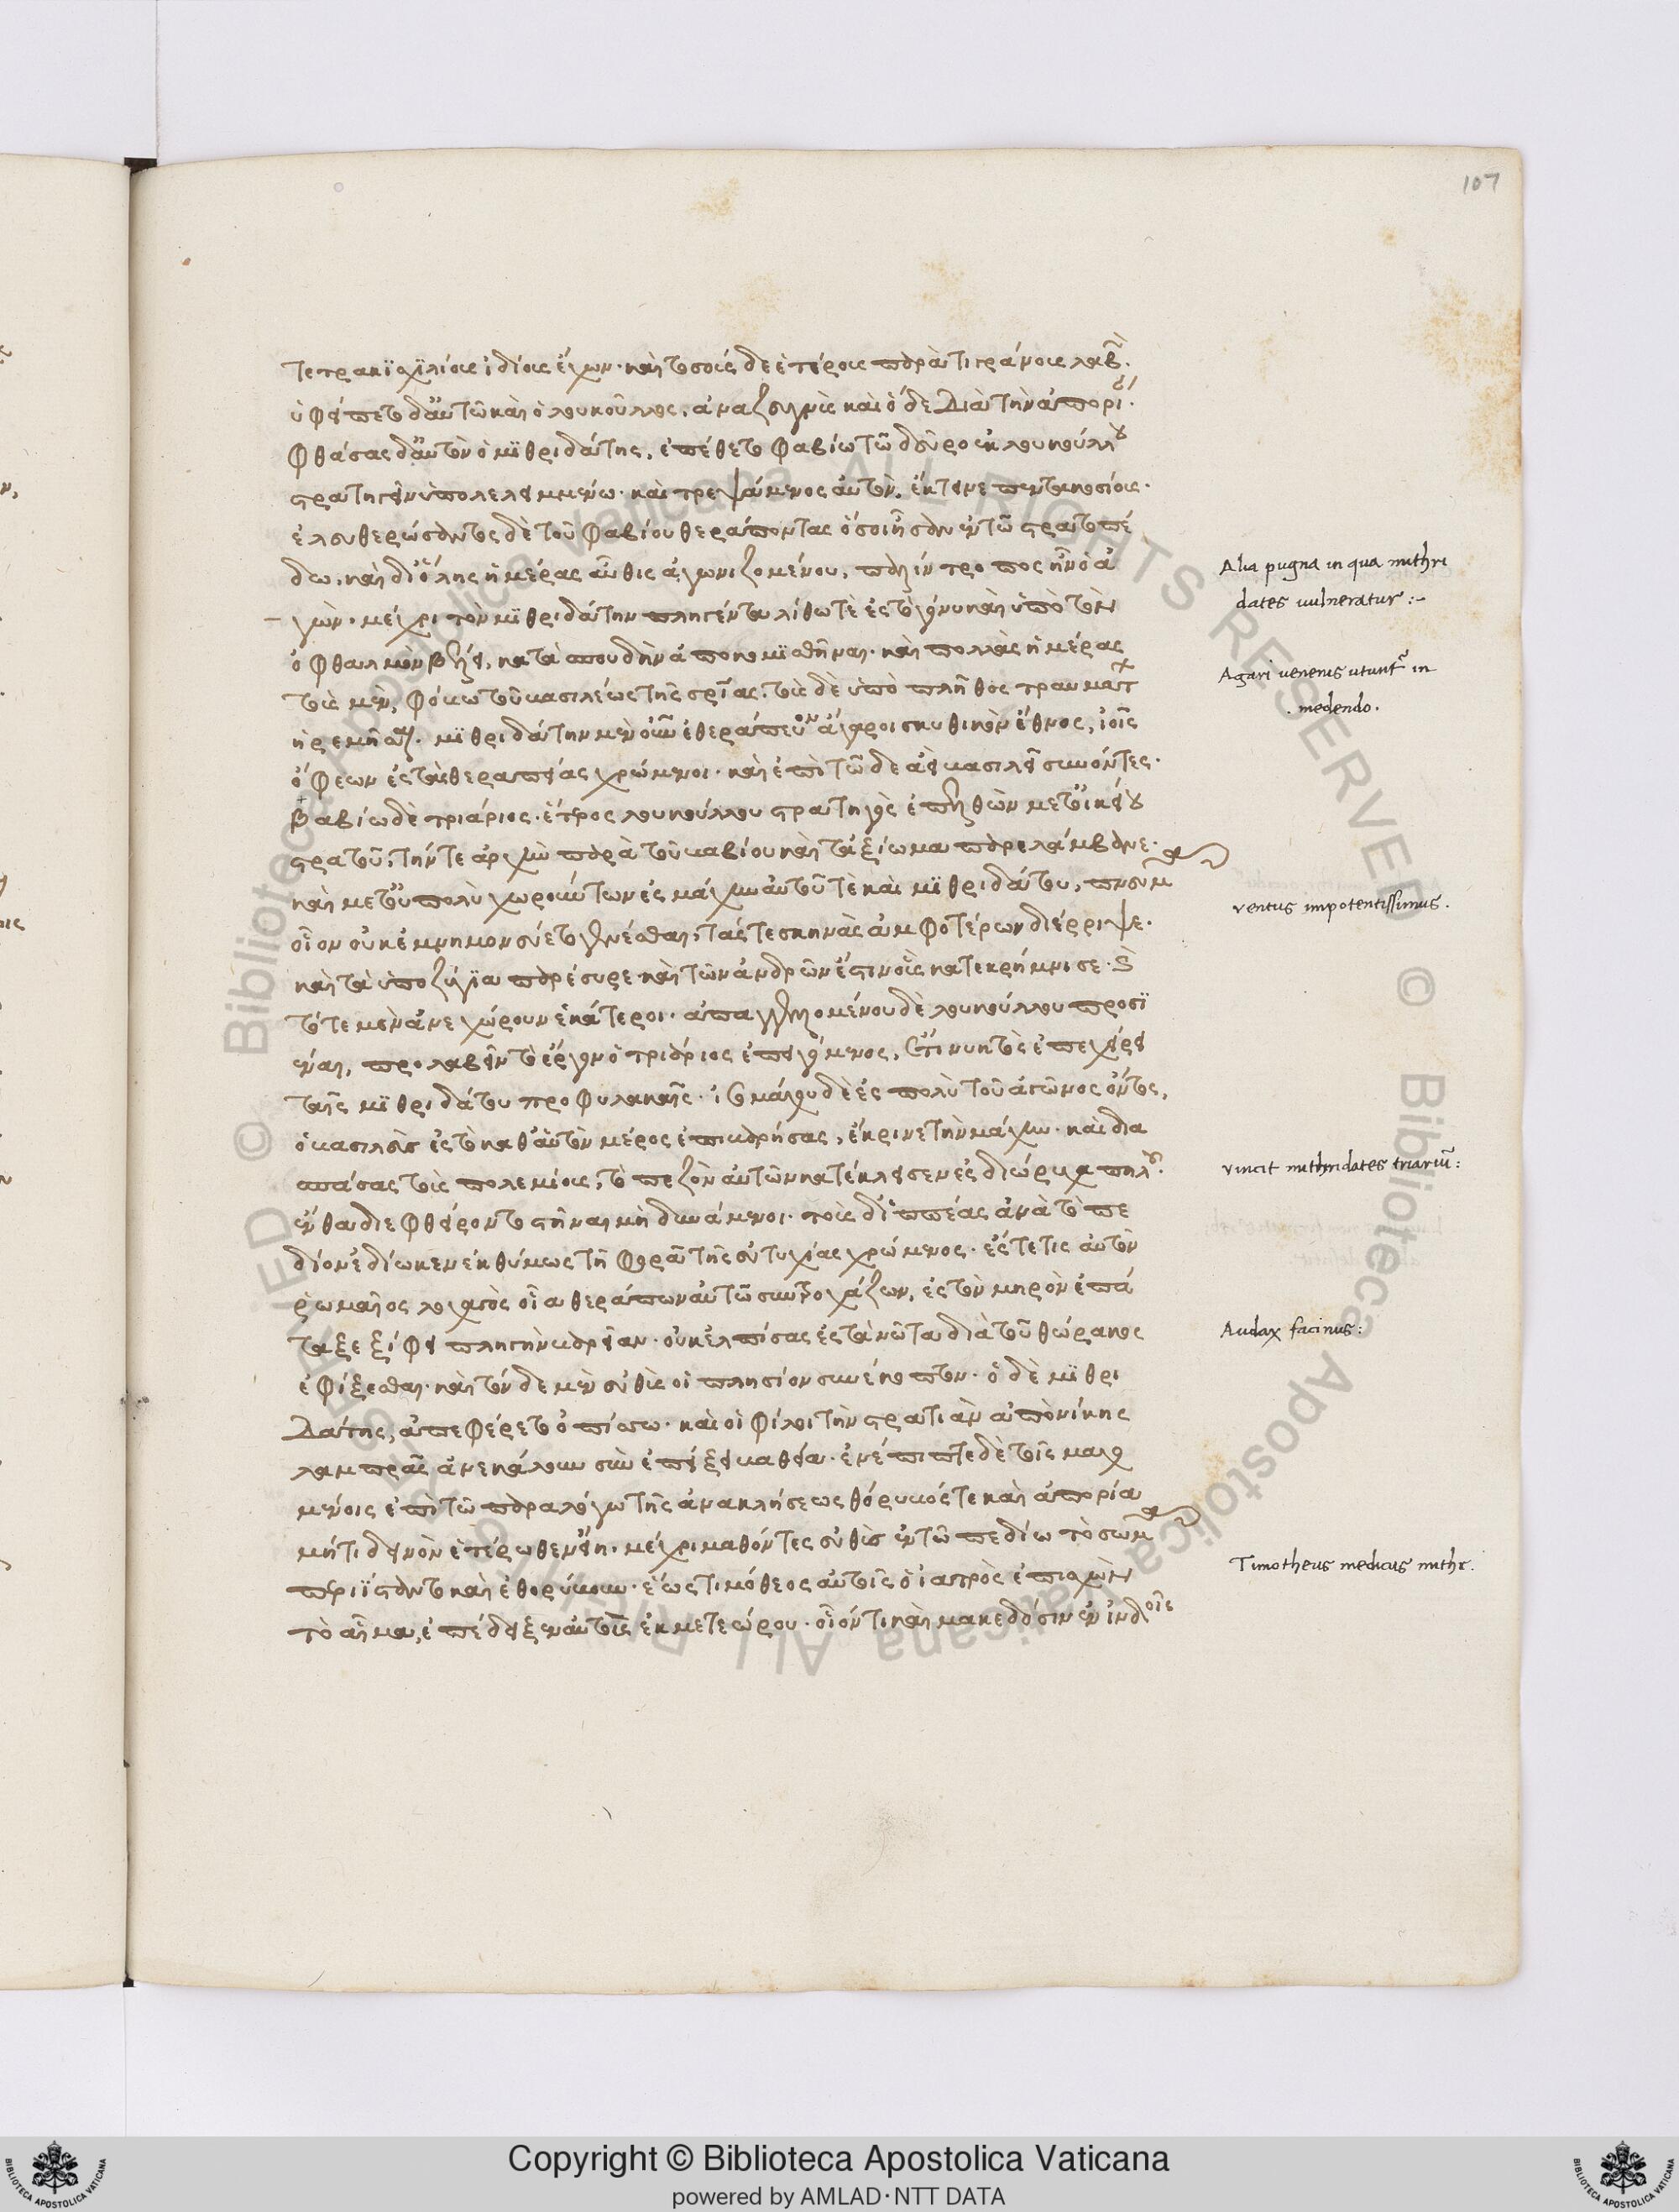 τετρακισχιλίους ἰδίους ἔχων· καὶ τοσούσδε ἑτέρους παρὰ τιγράνους λαβών.
ὑφείπετο δ' αὐτῶ καὶ ὁ λούκουλλος, ἀναζευγνὺς καὶ ὅδε διὰ τὴν ἀπορίαν.
φθάσας δ' αὐτὸν ὁ μιθριδάτης, ἐπέθετο φαβίω τῶ δεῦρο ἐκ λουκούλλου
στρατηγεῖν ὑπολελειμμένω· καὶ τρεψάμενος αὐτὸν, ἔκτεινε πεντακοσίους·
ἐλευθερώσαντος δὲ τοῦ φαβίου θεράποντας ὅσοι ἦσαν ἐν τῶ στρατοπέ
δω, καὶ δι' ὅλης ἡμέρας αὖθις ἀγωνιζομένου, παλίντροπος ἦν ὁ ἀ
γών· μέχρι τὸν μιθριδάτην πληγέντα λίθω τὲ ἐς τὸ γόνυ καὶ ὑπὸ τὸν
ὀφθαλμὸν βέλει, κατὰ σπουδὴν ἀποκομισθῆναι· καὶ πολλὰς ἡμέρας
τοὺς μὲν, φόβω τοῦ βασιλέως τῆς σωτηρίας· τοὺς δὲ ὑπὸ πλῆθος τραυμάτων
ἠρεμῆσαι. μιθριδάτην μὲν οὖν ἐθεράπευον ἄγαροι σκυθικὸν ἔθνος, ἰοῖς
ὄφεων ἐς τὰς θεραπείας χρώμενοι· καὶ ἐπὶ τῶδε ἀεὶ βασιλεῖ συνόντες·
βαβίω δὲ τριάριος· ἕτερος λουκούλλου στρατηγὸς ἐπῆλθὼν μετ' οἰκείου
στρατοῦ, τήν τε ἀρχὴν παρὰ τοῦ βαβίου καὶ τἀξίωμα παρελάμβανε·
καὶ μετ' οὐ πολὺ χωρούντων ἐς μάχην αὐτοῦ τὲ καὶ μιθριδάτου, πνεῦμα
οἷον οὐκ ἐμνημονεύετο γενέσθαι, τάς τε σκηνὰς ἀμφοτέρων διέρριψε·
καὶ τὰ ὑποζύγια παρέσυρε καὶ τῶν ἀνδρῶν ἔστιν οὓς κατεκρήμνισε· καὶ
τότε μὲν ἀνεχώρουν ἑκάτεροι· ἀπαγγελλομένου δὲ λουκούλλου προσι
έναι, προλαβεῖν τὸ ἔργον ὁ τριάριος ἐπειγόμενος, ἔτι νυκτὸς ἐπεχείρει
ταῖς μιθριδάτου προφυλακαῖς· ἰσομάχου δὲ ἐς πολὺ τοῦ ἀγῶνος ὄντος,
ὁ βασιλεὺς ἐς τὸ καθ' αὑτὸν μέρος ἐπιβαρήσας, ἔκρινε τὴν μάχην· καὶ δια
σπάσας τοὺς πολεμίους, τὸ πεζὸν αὐτῶν κατέκλεισεν ἐς διώρυχα πηλοῦ.
ἔνθα διεφθείροντο στῆναι μὴ δυνάμενοι· τοὺς δ' ἱππέας ἀνὰ τὸ πε
δίον ἐδίωκεν ἐκθύμως τῆ φορᾶ τῆς εὐτυχίας χρώμενος· ἔς τέ τις αὐτὸν
ῥωμαῖος λοχαγὸς οἷα θεράπων αὐτῶ συντροχάζων, ἐς τὸν μηρὸν ἐπά
ταξε ξίφει πληγὴν βαρεῖαν· οὐκ ἐλπίσας ἐς τὰ νῶτα διὰ τοῦ θώρακος
ἐφίξεσθαι· καὶ τόνδε μὲν εὐθὺς οἱ πλησίον συνέκοπτον· ὁ δὲ μιθρι
δάτης, ἀπεφέρετο ὀπίσω· καὶ οἱ φίλοι τὴν στρατιὰν ἀπὸ νίκης
λαμπρᾶς ἀνεκάλουν σὺν ἐπείξει βαθεία· ἐνέπιπτε δὲ τοῖς μαχο
μένοις ἐπὶ τῶ παραλόγω τῆς ἀνακλήσεως θόρυβός τε καὶ ἀπορία
μή τι δεινὸν ἑτέρωθεν εἴη· μέχρι μαθόντες εὐθὺς ἐν τῶ πεδίω τὸ σῶμα
περιίσταντο καὶ ἐθορύβουν· ἕως τιμόθεος αὐτοῖς ὁ ἰατρὸς ἐπισχὼν
τὸ αἷμα, ἐπέδειξεν αὐτοῖς ἐκ μετεώρου· οἷόν τι καὶ μακεδόσιν ἐν ἰνδοῖς
107
Alia pugna in qua mithri
dates uulneratur :-
Agari uenenis utunt̃ in
. medendo.
ventus impotentissimus.
vincit mithridates triariũ :
Audax facinus :
Timotheus medicus mithr.
Copyright © Biblioteca Apostolica Vaticana
powered by AMLAD·NTT DATA